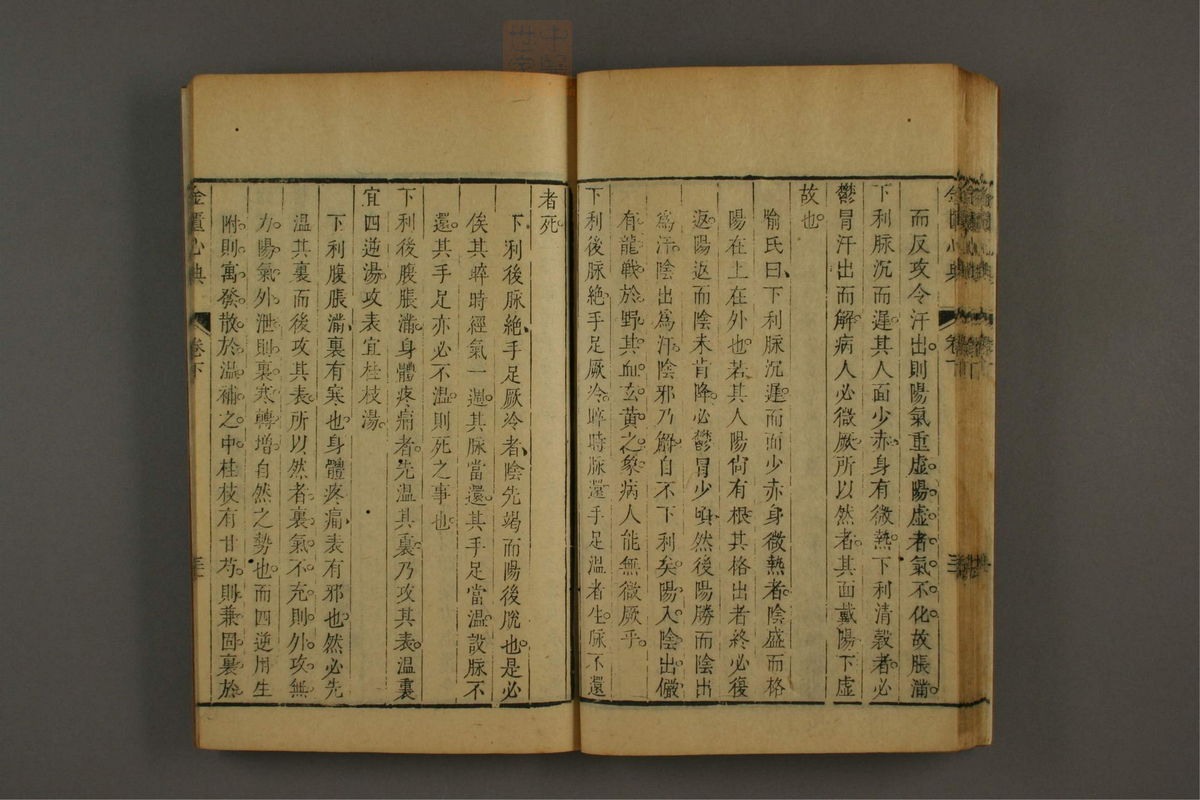 而反攻令汗出則陽氣重虛陽虛者氣不化故脹滿
下利脉沉而遲其人面少赤身有微熱下利清穀者必
鬱冒汗出而解病人必微厥所以然者其面戴陽下虛
故也
喻氏曰下利脉沉遲而面少赤身微熱者陰盛而格
陽在上在外也若其人陽尙有根其格出者終必復
返陽返而陰未肯降必鬱冒少頃然後陽勝而陰出
爲汗陰出爲汗陰邪乃解自不下利矣陽入陰出儼
有龍戰於野其血玄黃之象病人能無微厥乎
下利後脉絶手足厥冷晬時脉還手足溫者生脉不還
者死
下利後脉絶手足厥冷者陰先竭而陽後脫也是必
俟其晬時經氣一週其脉當還其手足當溫設脉不
還其手足亦必不溫則死之事也
下利後腹脹滿身體疼痛者先溫其裏乃攻其表溫裏
宜四逆湯攻表宜桂枝湯
下利腹脹滿裏有寒也身體疼痛表有邪也然必先
溫其裏而後攻其表所以然者裏氣不充則外攻無
力陽氣外泄則裏寒轉增自然之勢也而四逆用生
附則寓發散於溫補之中桂枝有甘芍則兼固裏於
金匱心典
卷下